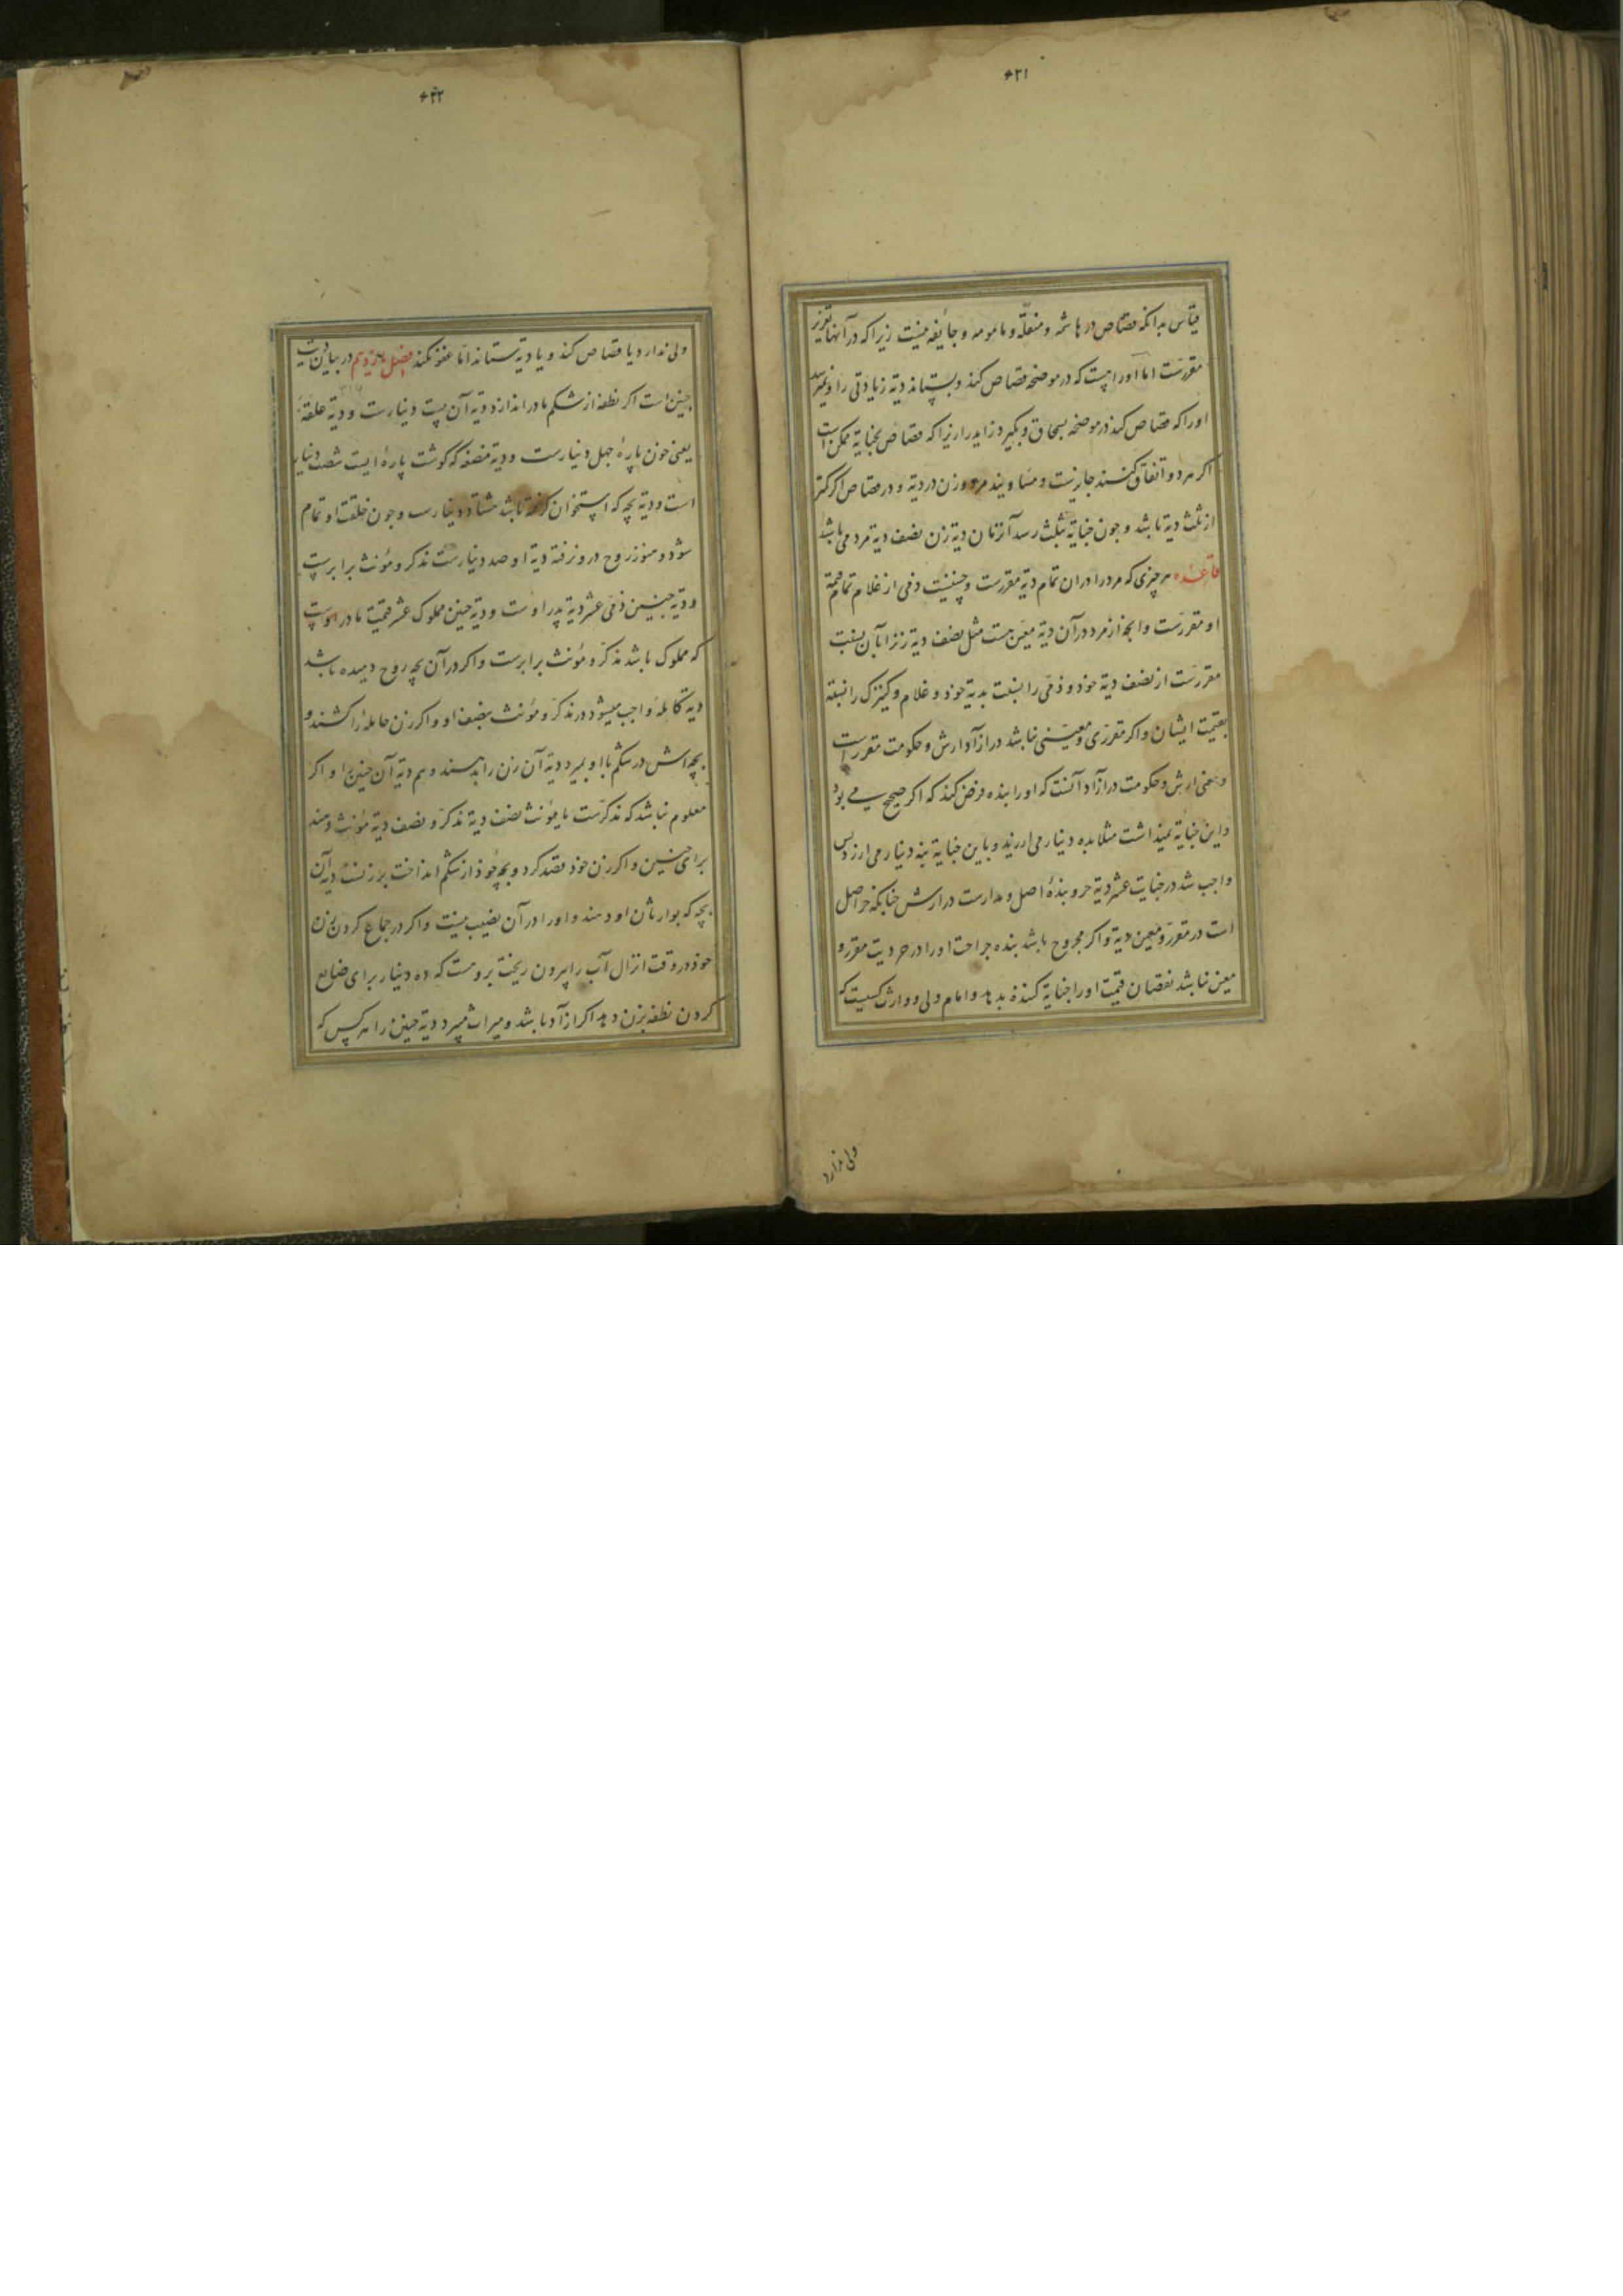 ۶۲۱
قیاس بدانکه قصاص در هاشمه و منقله و مامومه و جایفه نیست زیرا که در آنها تعزیر
مقررست اما او را هست که در موضحه قصاص کند و بستاند دیة زیادتی را و نمیرسد
او را که قصاص کند در موضحه بسمحاق و بکیرد زاید را زیرا که قصاص بجنایة ممکن است
اکر مردو اتفاق کنند جایزست و مساویند مرد و زن در دیة و در قصاص اکر کمتر
از ثلث دیة باشد و چون جنایة بثلث رسد آنزمان دیة زن نصف دیة مرد می باشد
قاعده هر چیزی که مرد را در ان تمام دیة مقررست و چنینست ذمی از غلام تمام قیمة
او مقررست و انچه از مرد در آن دیة معین هست مثل نصف دیة زنرا بآن نسبت
مقررست از نصف دیة خود و ذمی را بنسبت بدیة خود و غلام و کنیزک را نسبة
بقیمت ایشان و اکر مقرری و معینی نباشد در ازآد ارش و حکومت مقررست
و معنی ارش و حکومت در ازآد آنست که او را بنده فرض کند که اکر صحیح می بود
و این جنایة نمیداشت مثلا بده دینار می ارزید و باین جنایة بنه دینار می ارزد پس
واجب شد در جنایت عشر دیة حر و بندهٔ اصل و مدارست در ارش چنانکه حر اصل
است در مقرر و معین دیة و اکر مجروح باشد بنده جراحتا و را در حر دیت مقرر و
معین نباشد نقصان قیمت او را جنایة کننده بدهد و امام ولی و وارث کسیست که
ولی ندارد
۶۲۲
ولی ندارد یا قصاص کند و یا دیة بستاند اما عفو نکند فصل یازدهم در بیان دیت
۳۱۶
جنین است اکر نطفه از شکم مادر اندازد دیة آن بیست دینارست و دیة علقهٔ
یعنی خون پارهٔ چهل دینارست و دیة مضغه که کوشت پارهٔ ایست شصت دینار
است و دیة بچه که استخوان کرفته باشد هشتاد دینارست و چون خلقت او تمام
شود و هنوز روح درو نرفته دیة او صد دینارست مذکر و مؤنث برابرست
و دیة جنین ذمی عشر دیة پدر اوست و دیة جنین مملوک عشر قیمت مادر اوست
که مملوک باشد مذکر و مؤنث برابرست و اکر در آن بچه روح دمیده باشد
دیة کامله واجب میشود در مذکر و مؤنث بنصف او و اکر زن حامله را کشند و
بچه اش در شکم با او بمیرد دیة آن زن را بدهند و هم دیة آن جنین را و اکر
معلوم نباشد که مذکرست یا مؤنث نصف دیة مذکر و نصف دیة مؤنث دهند
برای جنین و اکر زن خود قصد کرد و بچه خود از شکم انداخت بر زنست دیة آن
بچه که بوارثان او دهند و او را در آن نصیب نیست و اکر در جماع کردن بزن
خود در وقت انزال آب را بیرون ریخت بروست که ده دینار برای ضایع
کردن نطفه بزن دهد اکر ازآد باشد و میراث میبرد دیة جنین را هر کس که